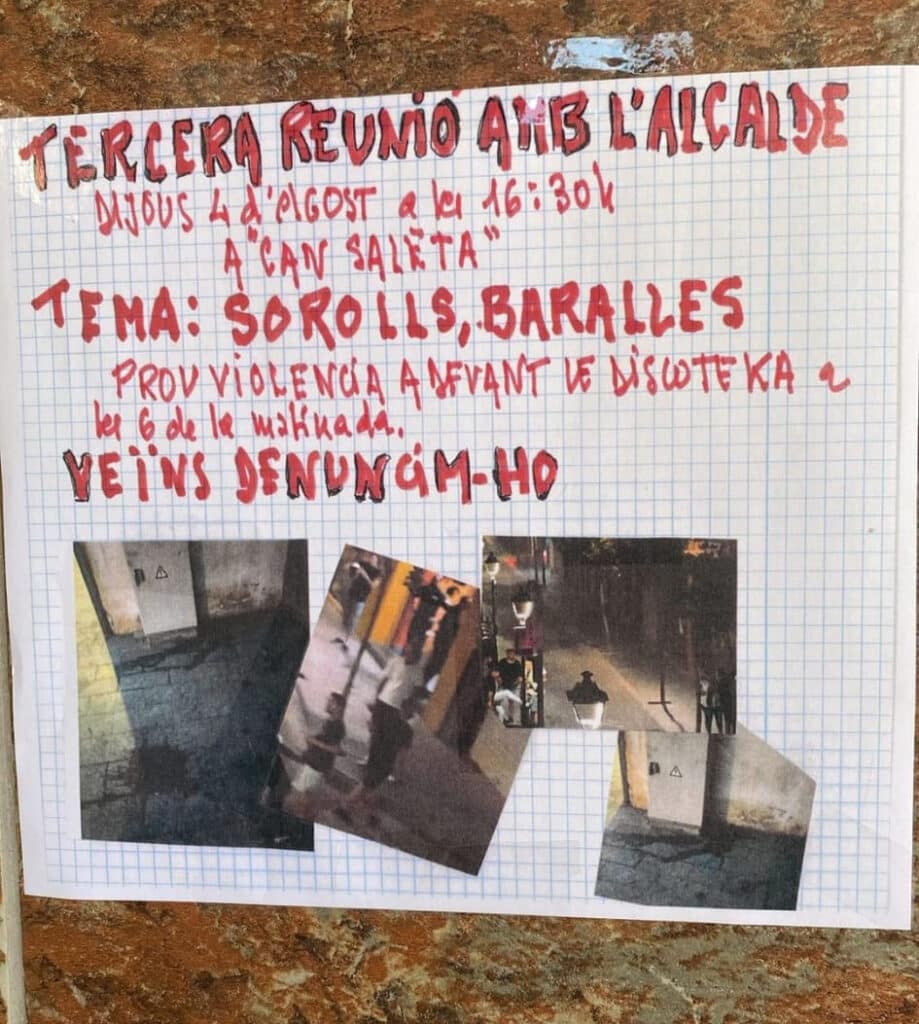 TERCERA REUNIÓ AMB L'ALCALDE
DIJOUS 4 d'AGOST a les 16:30h
A "CAN SALËTA"
TEMA: SOROLLS, BARALLES
PROU VIOLENCIA A DEVANT DE DISCOTEKA a
les 6 de la matinada.
VEÏNS DENUNCIM-HO